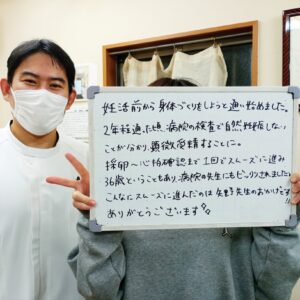 妊活前から身体づくりをしようと通い始めました。
2年程通った頃、病院の検査で自然妊娠しない
ことが分かり、顕微受精することに。
採卵〜心拍確認まで1回でスムーズに進み
36歳ということもあり、病院の先生にもビックリされました!
こんなにスムーズに進んだのは矢野先生のおかげです!!
ありがとうございます